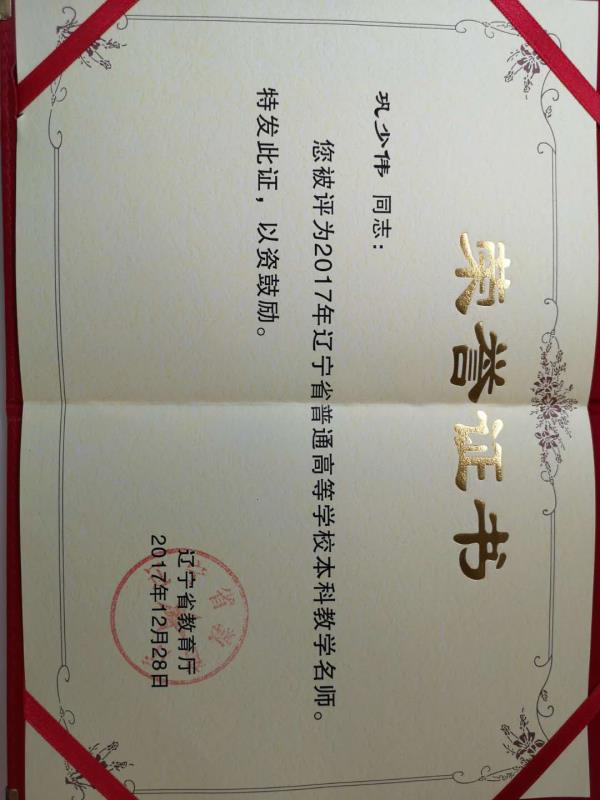 荣誉证书
巩少伟 同志：
您被评为2017年辽宁省普通高等学校本科教学名师。
特发此证，以资鼓励。
辽宁省教育厅
2017年12月28日